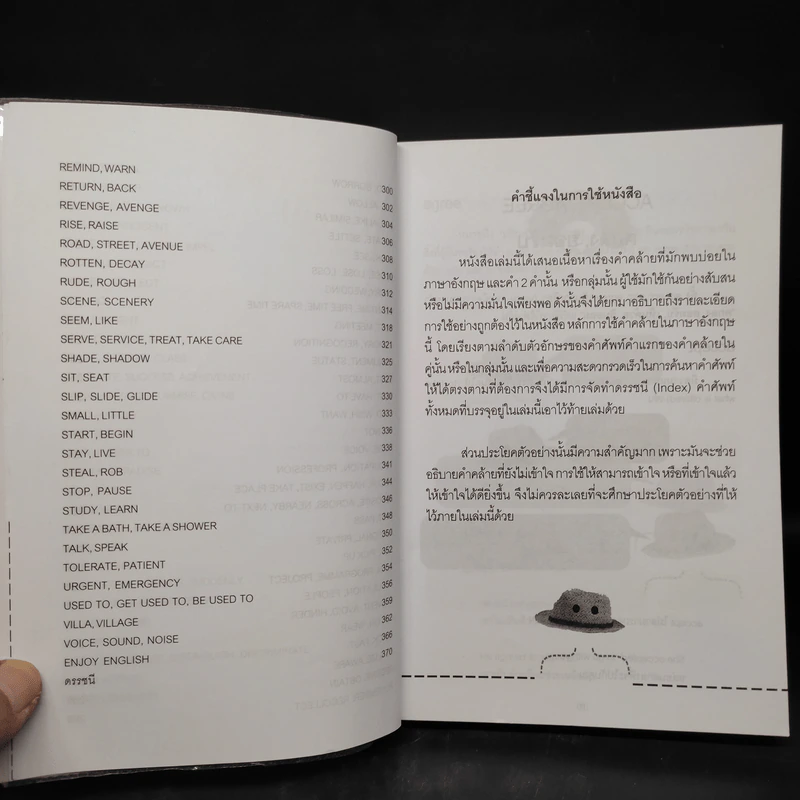 REMIND, WARN 300
RETURN, BACK 302
REVENGE, AVENGE 304
RISE, RAISE 306
ROAD, STREET, AVENUE 308
ROTTEN, DECAY 310
RUDE, ROUGH 312
SCENE, SCENERY 314
SEEM, LIKE 318
SERVE, SERVICE, TREAT, TAKE CARE 321
SHADE, SHADOW 325
SIT, SEAT 327
SLIP, SLIDE, GLIDE 330
SMALL, LITTLE 333
START, BEGIN 336
STAY, LIVE 338
STEAL, ROB 341
STOP, PAUSE 344
STUDY, LEARN 346
TAKE A BATH, TAKE A SHOWER 348
TALK, SPEAK 350
TOLERATE, PATIENT 352
URGENT, EMERGENCY 354
USED TO, GET USED TO, BE USED TO 356
VILLA, VILLAGE 359
VOICE, SOUND, NOISE 362
ENJOY ENGLISH 366
ดรรชนี 370
คำชี้แจงในการใช้หนังสือ
หนังสือเล่มนี้ได้เสนอเนื้อหาเรื่องคำคล้ายที่มักพบบ่อยใน
ภาษาอังกฤษ และคำ 2 คำนั้น หรือกลุ่มนั้น ผู้ใช้มักใช้กันอย่างสับสน
หรือไม่มีความมั่นใจเพียงพอ ดังนั้นจึงได้ยกมาอธิบายถึงรายละเอียด
การใช้อย่างถูกต้องไว้ในหนังสือ หลักการใช้คำคล้ายในภาษาอังกฤษ
นี้ โดยเรียงตามลำดับตัวอักษรของคำศัพท์คำแรกของคำคล้ายใน
คู่นั้น หรือในกลุ่มนั้น และเพื่อความสะดวกรวดเร็วในการค้นหาคำศัพท์
ให้ได้ตรงตามที่ต้องการจึงได้มีการจัดทำดรรชนี (Index) คำศัพท์
ทั้งหมดที่บรรจุอยู่ในเล่มนี้เอาไว้ท้ายเล่มด้วย
ส่วนประโยคตัวอย่างนั้นมีความสำคัญมาก เพราะมันจะช่วย
อธิบายคำคล้ายที่ยังไม่เข้าใจ การใช้ให้สามารถเข้าใจ หรือที่เข้าใจแล้ว
ให้เข้าใจได้ดียิ่งขึ้น จึงไม่ควรละเลยที่จะศึกษาประโยคตัวอย่างที่ให้
ไว้ภายในเล่มนี้ด้วย